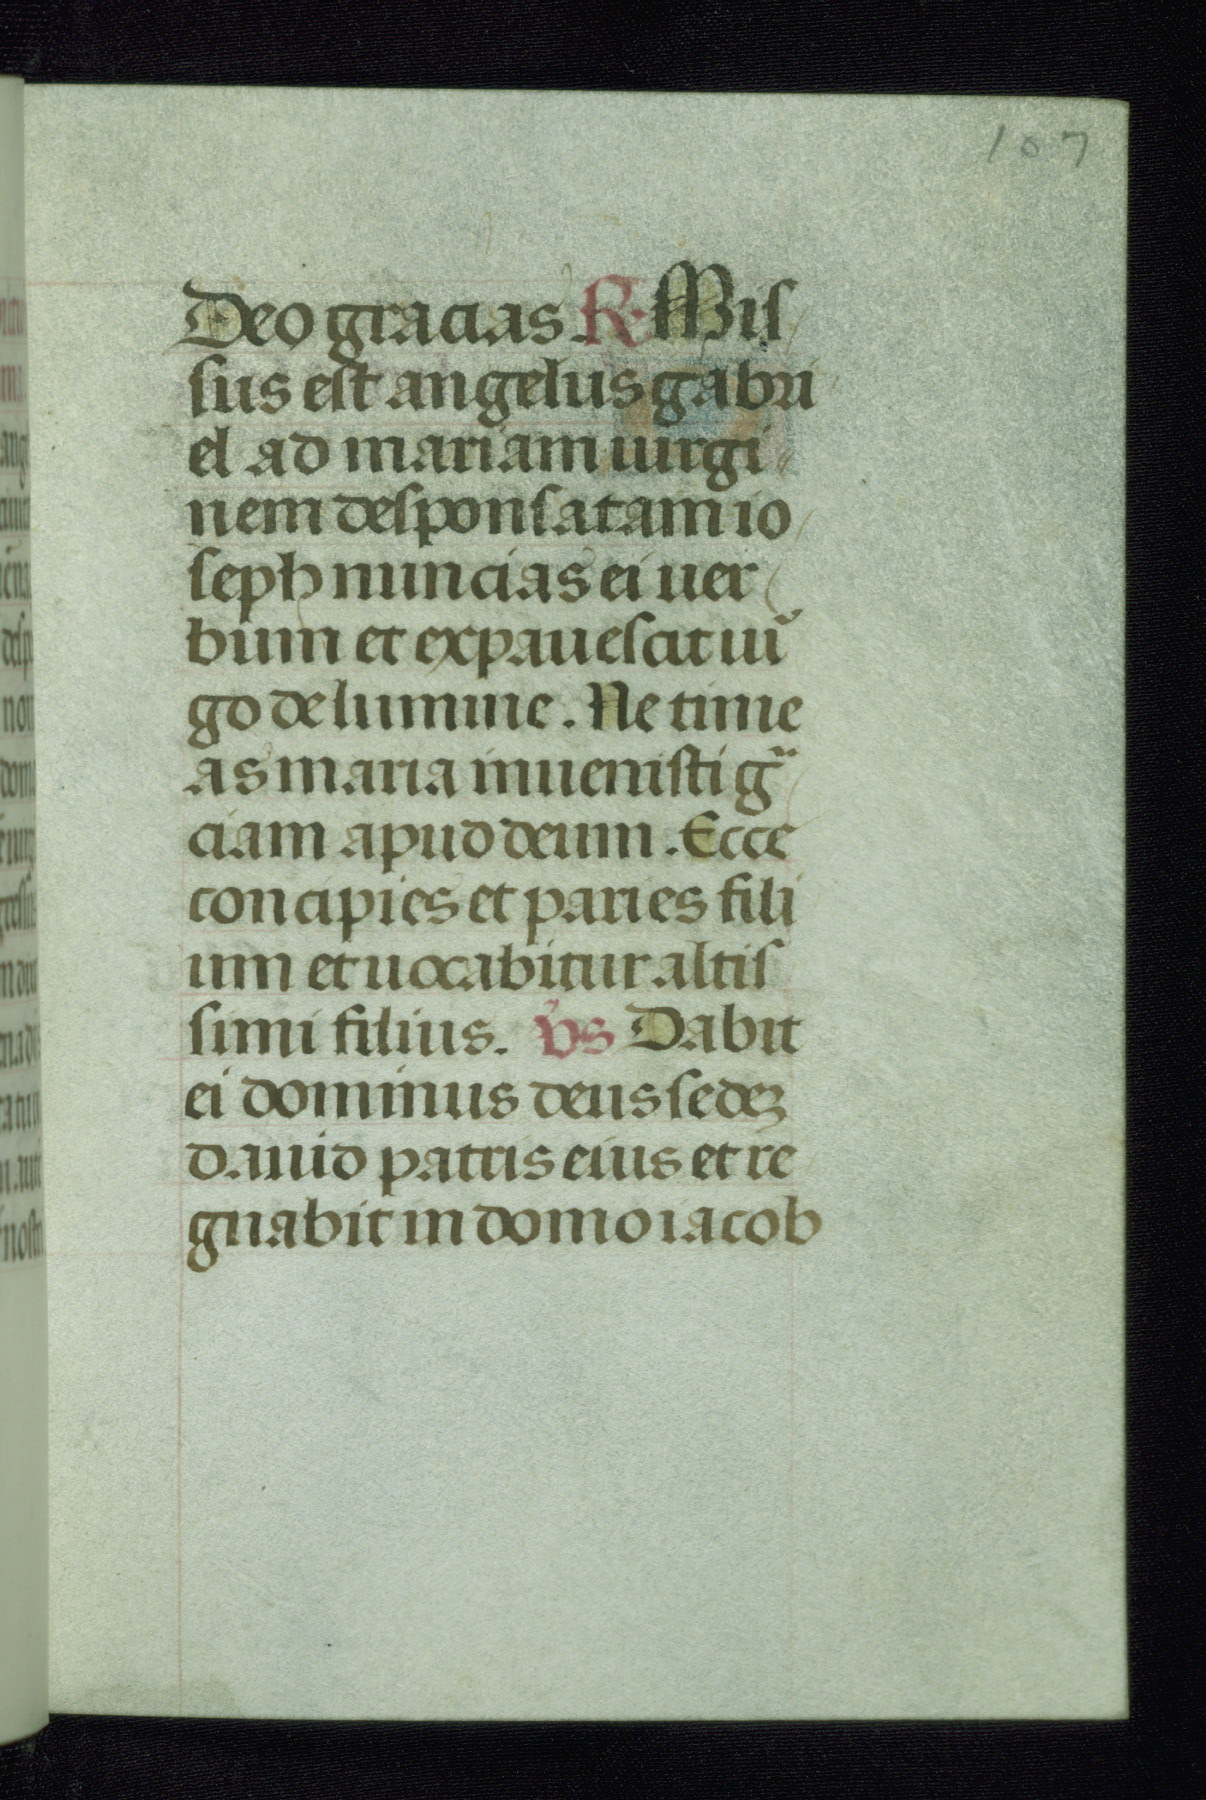 107
Deo gracias. R. Mis
sus est angelus gabri
el ad mariam uirgi
nem desponsatam io
seph nuncias ei uer
bum et expauescit uir̉
go de lumine. Ne time
as maria inuenisti gᵃ
ciam apud deum. Ecce
concipies et paries fili
um et uocabitur altis
simi filius. v̉s Dabit
ei dominus deus sedeʒ
dauid patris eius et re
gnabit in domo iacob